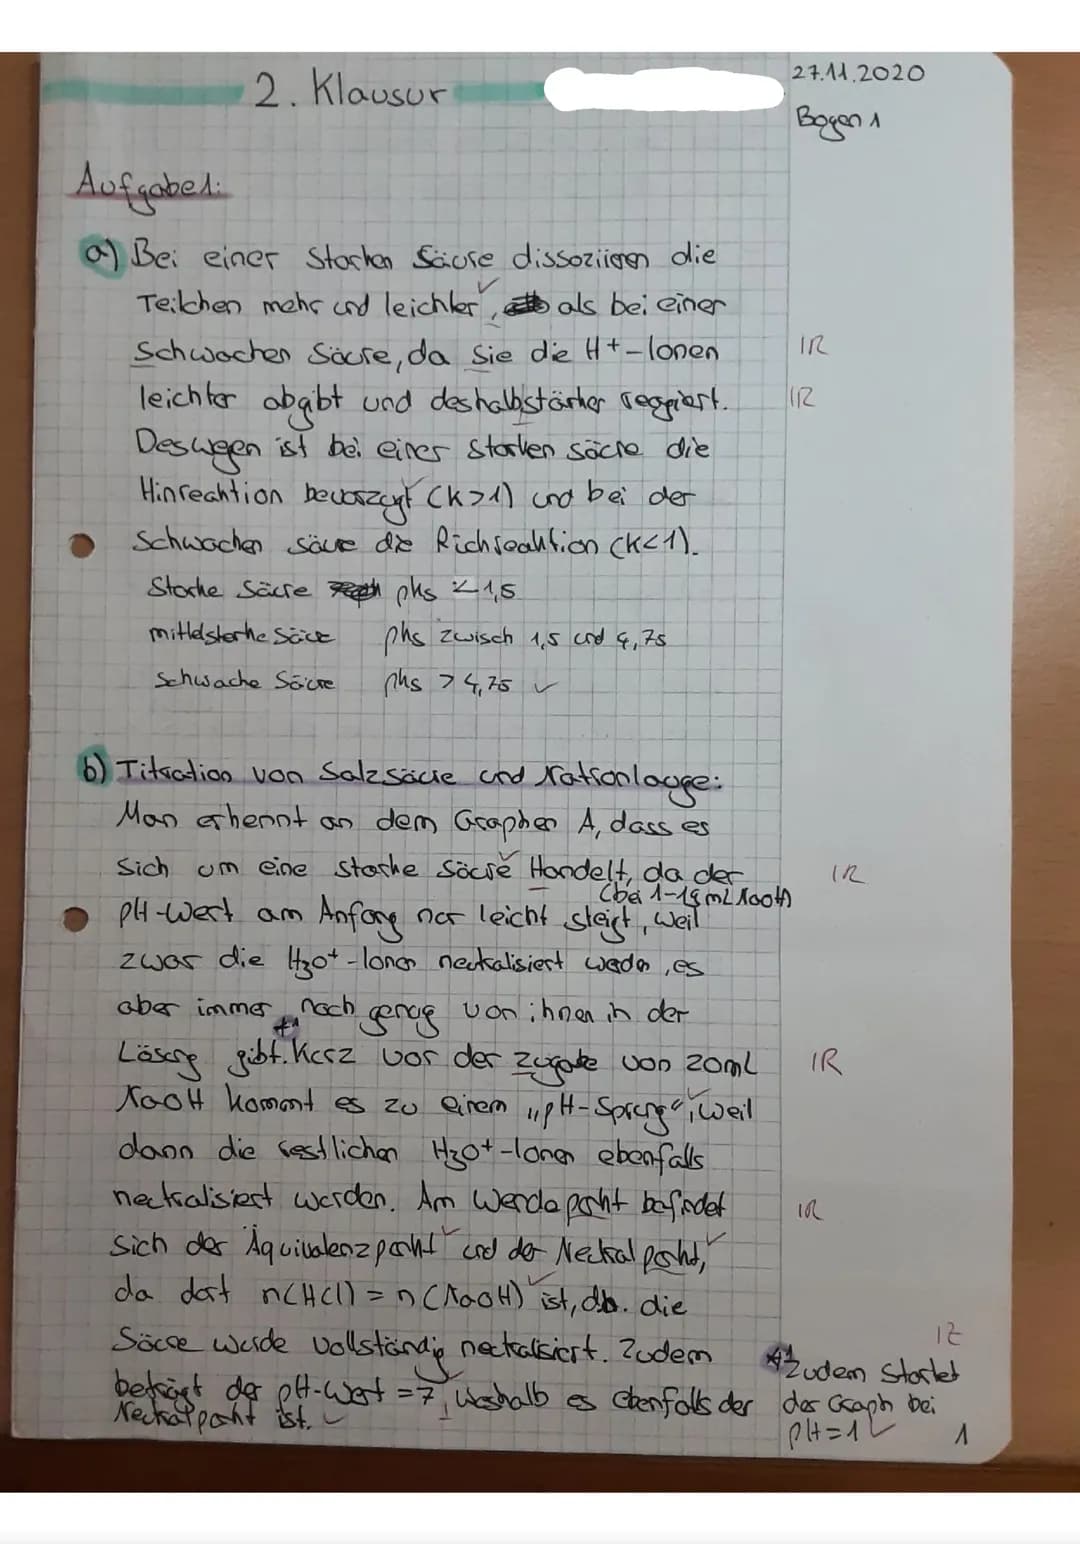 2. Klausur
27.11.2020
Bogen 1
Aufgabe 1:
a) Bei einer starken Säure dissoziieren die
Teilchen mehr und leichter, als bei einer
Schwachen Säure, da sie die H+-Ionen
1R
leichter abgibt und deshalb stärker reagiert.
1R
Deswegen ist bei einer starken Säure die
Hinreaktion bevorzugt (K>1) und bei der
schwachen Säure die Rückreaktion (K<1).
Starke Säure pks < 1,5
mittelstarke Säure pks zwisch 1,5 und 4,75
Schwache Säure pks > 4,75 ✓
b) Titration von Salzsäure und Natronlauge:
Man erkennt an dem Graphen A, dass es
sich um eine starke Säure Handelt, da der
1R
(bei 1-18 mL NaOH)
pH-Wert am Anfang nur leicht steigt, weil
zwar die H3O+-Ionen neutralisiert werden, es
aber immer noch genug von ihnen in der
Lösung gibt. *1 Kurz vor der zugabe von 20mL
1R
NaOH kommt es zu einem „pH-Sprung“, weil
dann die restlichen H3O+-Ionen ebenfalls
neutralisiert werden. Am Wendepunkt befindet
1R
sich der Äquivalenzpunkt und der Neutralpunkt,
da dort n(HCl) = n(NaOH) ist, d.h. die
Säure wurde vollständig neutralisiert. Zudem
beträgt der pH-Wert = 7, weshalb es ebenfalls der
Neutralpunkt ist. ✓
1Z
*1 Zudem startet
der Graph bei
pH = 1 ✓
1